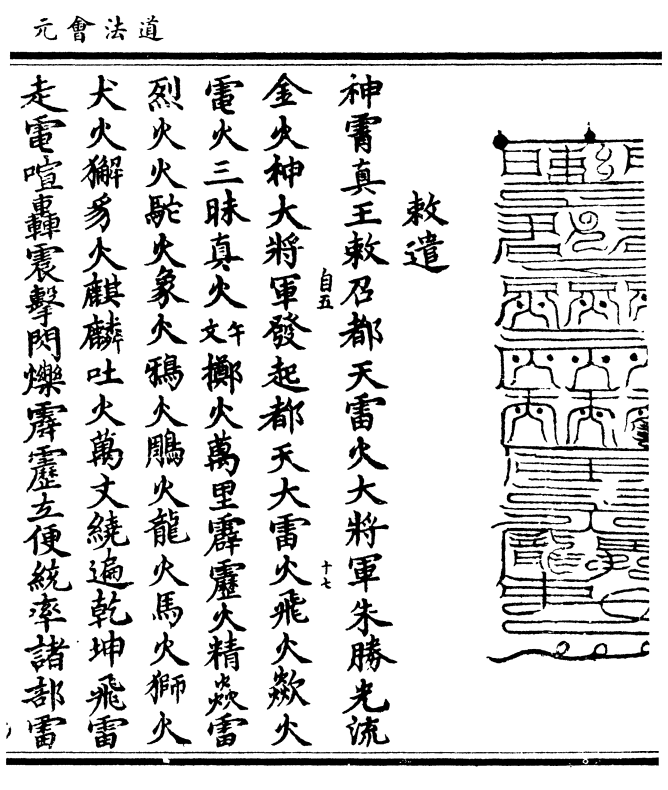 道法會元
敕遣
神霄真王敕召都天雷火大將軍朱勝光流
金火神大將軍發起都天大雷火飛火歘火
自五
十七
電火三昧真火午文擲火萬里霹靂火精焱雷
烈火火駝火象火鴉火鵰火龍火馬火獅火
犬火獬豸火麒麟吐火萬丈繞遍乾坤飛雷
走電喧轟震擊閃爍霹靂立便統率諸部雷